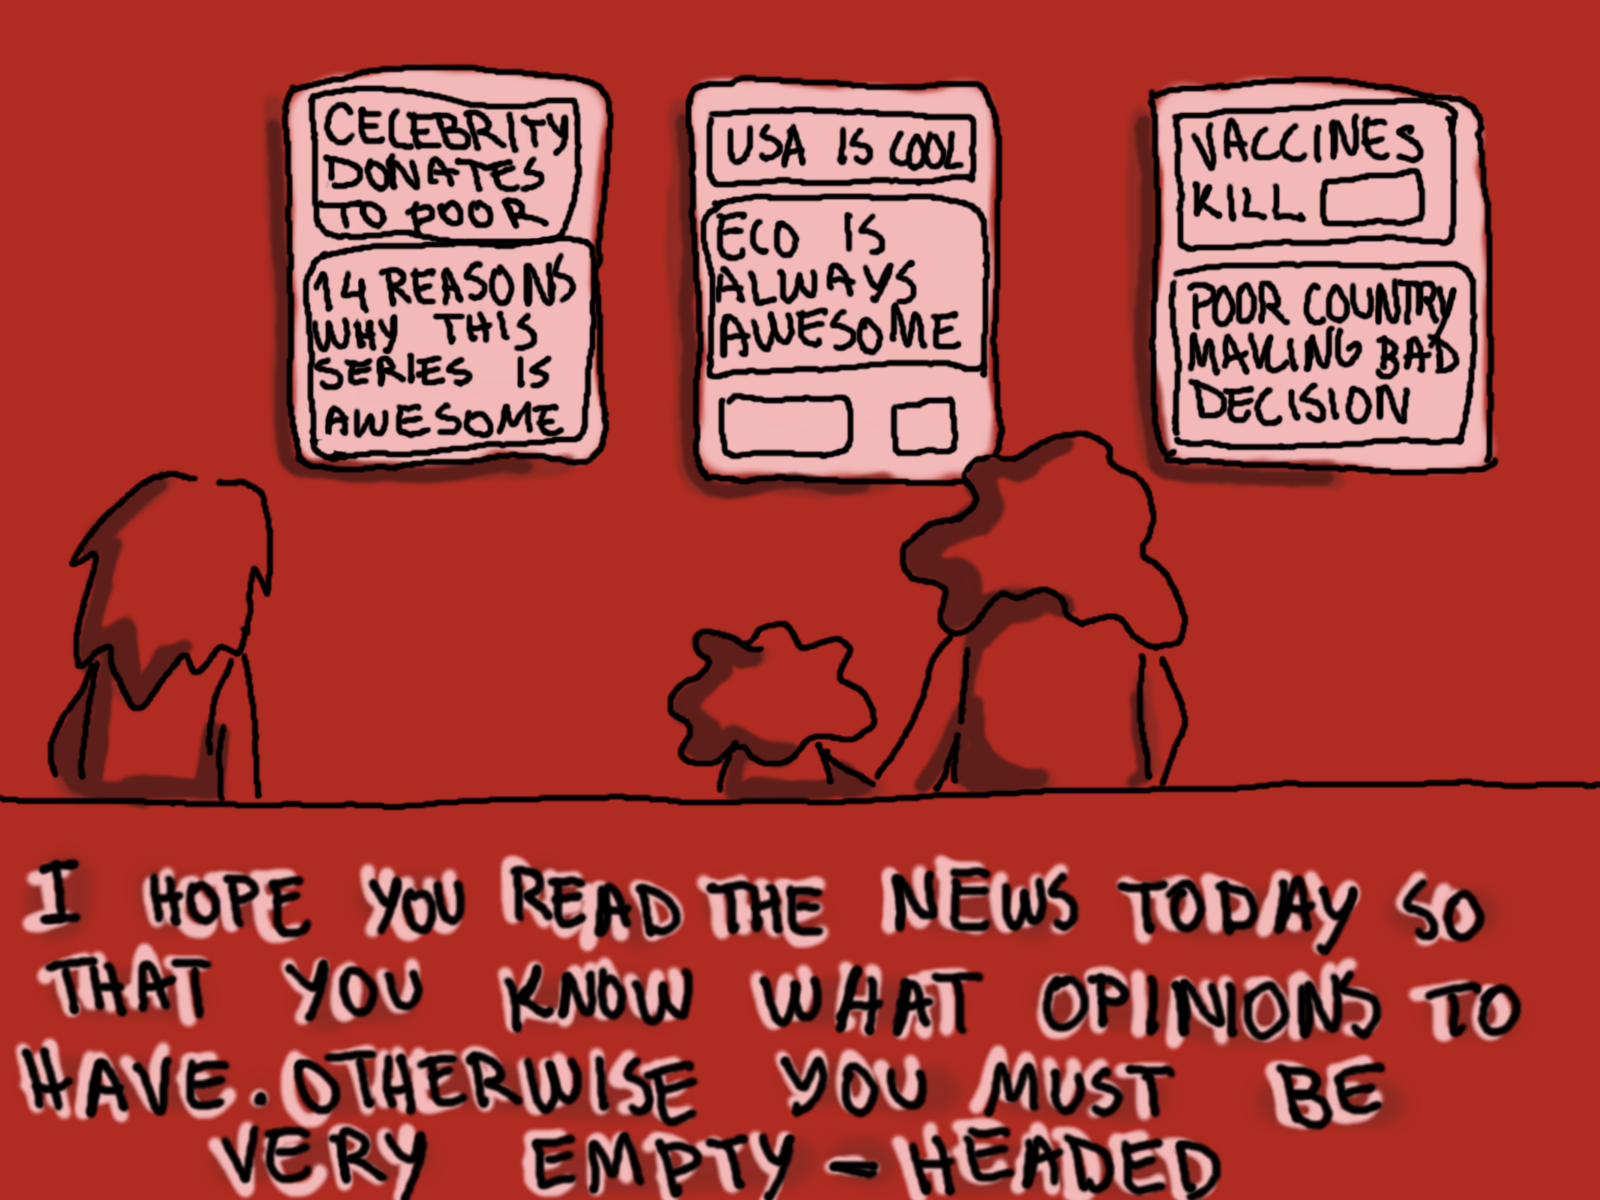 CELEBRITY
DONATES
TO POOR
14 REASONS
WHY THIS
SERIES IS
AWESOME
USA IS COOL
ECO IS
ALWAYS
AWESOME
VACCINES
KILL
POOR COUNTRY
MAKING BAD
DECISION
I HOPE YOU READ THE NEWS TODAY SO
THAT YOU KNOW WHAT OPINIONS TO
HAVE. OTHERWISE YOU MUST BE
VERY EMPTY - HEADED